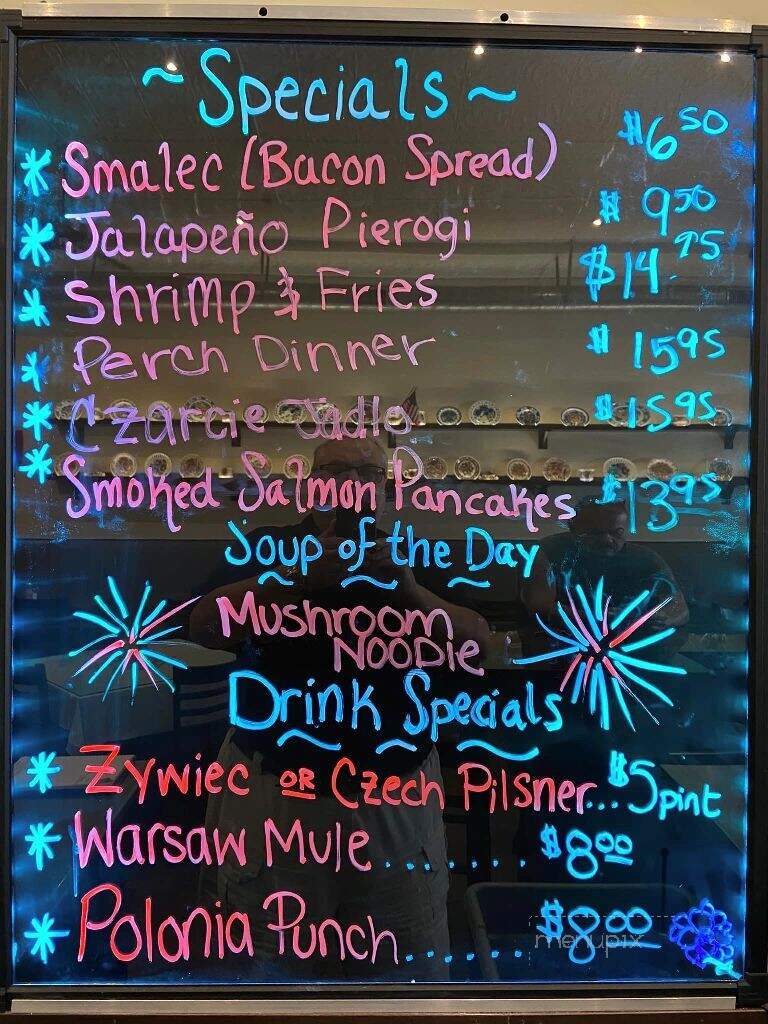 ~ Specials ~
* Smalec (Bacon Spread) $6.50
* Jalapeño Pierogi $9.50
* Shrimp & Fries $14.95
* Perch Dinner $15.95
* Czarcie Jadlo $15.95
* Smoked Salmon Pancakes $13.95
Soup of the Day
Mushroom
Noodle
Drink Specials
* Zywiec or Czech Pilsner...$5 pint
* Warsaw Mule........$8.00
* Polonia Punch.......$8.00
menupix